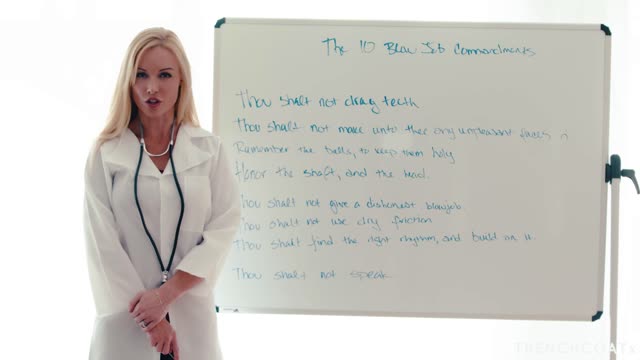 The 10 Blow Job Commandments
Thou shalt not drag teeth
Thou shalt not make unto thee any unpleasant faces
Remember the balls, to keep them holy
Honor the shaft, and the head.
Thou shalt not give a dishonest blowjob
Thou shalt not use dry friction
Thou shalt find the right rhythm, and build on it.
Thou shalt not speak
TRENCHCOATx